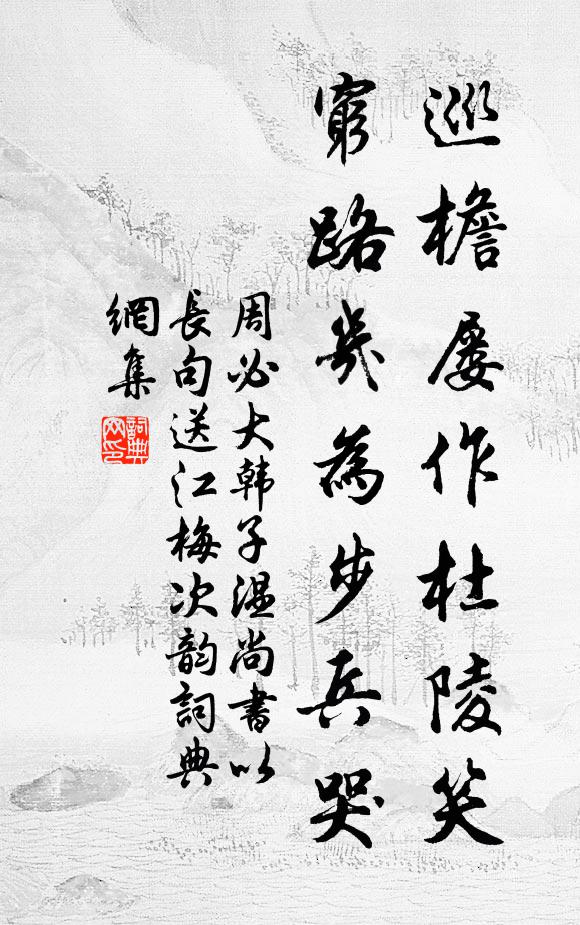 巡檐屡作杜陵笑
窮路幾為步兵哭
周必大韩子温尚書以
長句送江梅次韵詞典
網集
詞典
网印